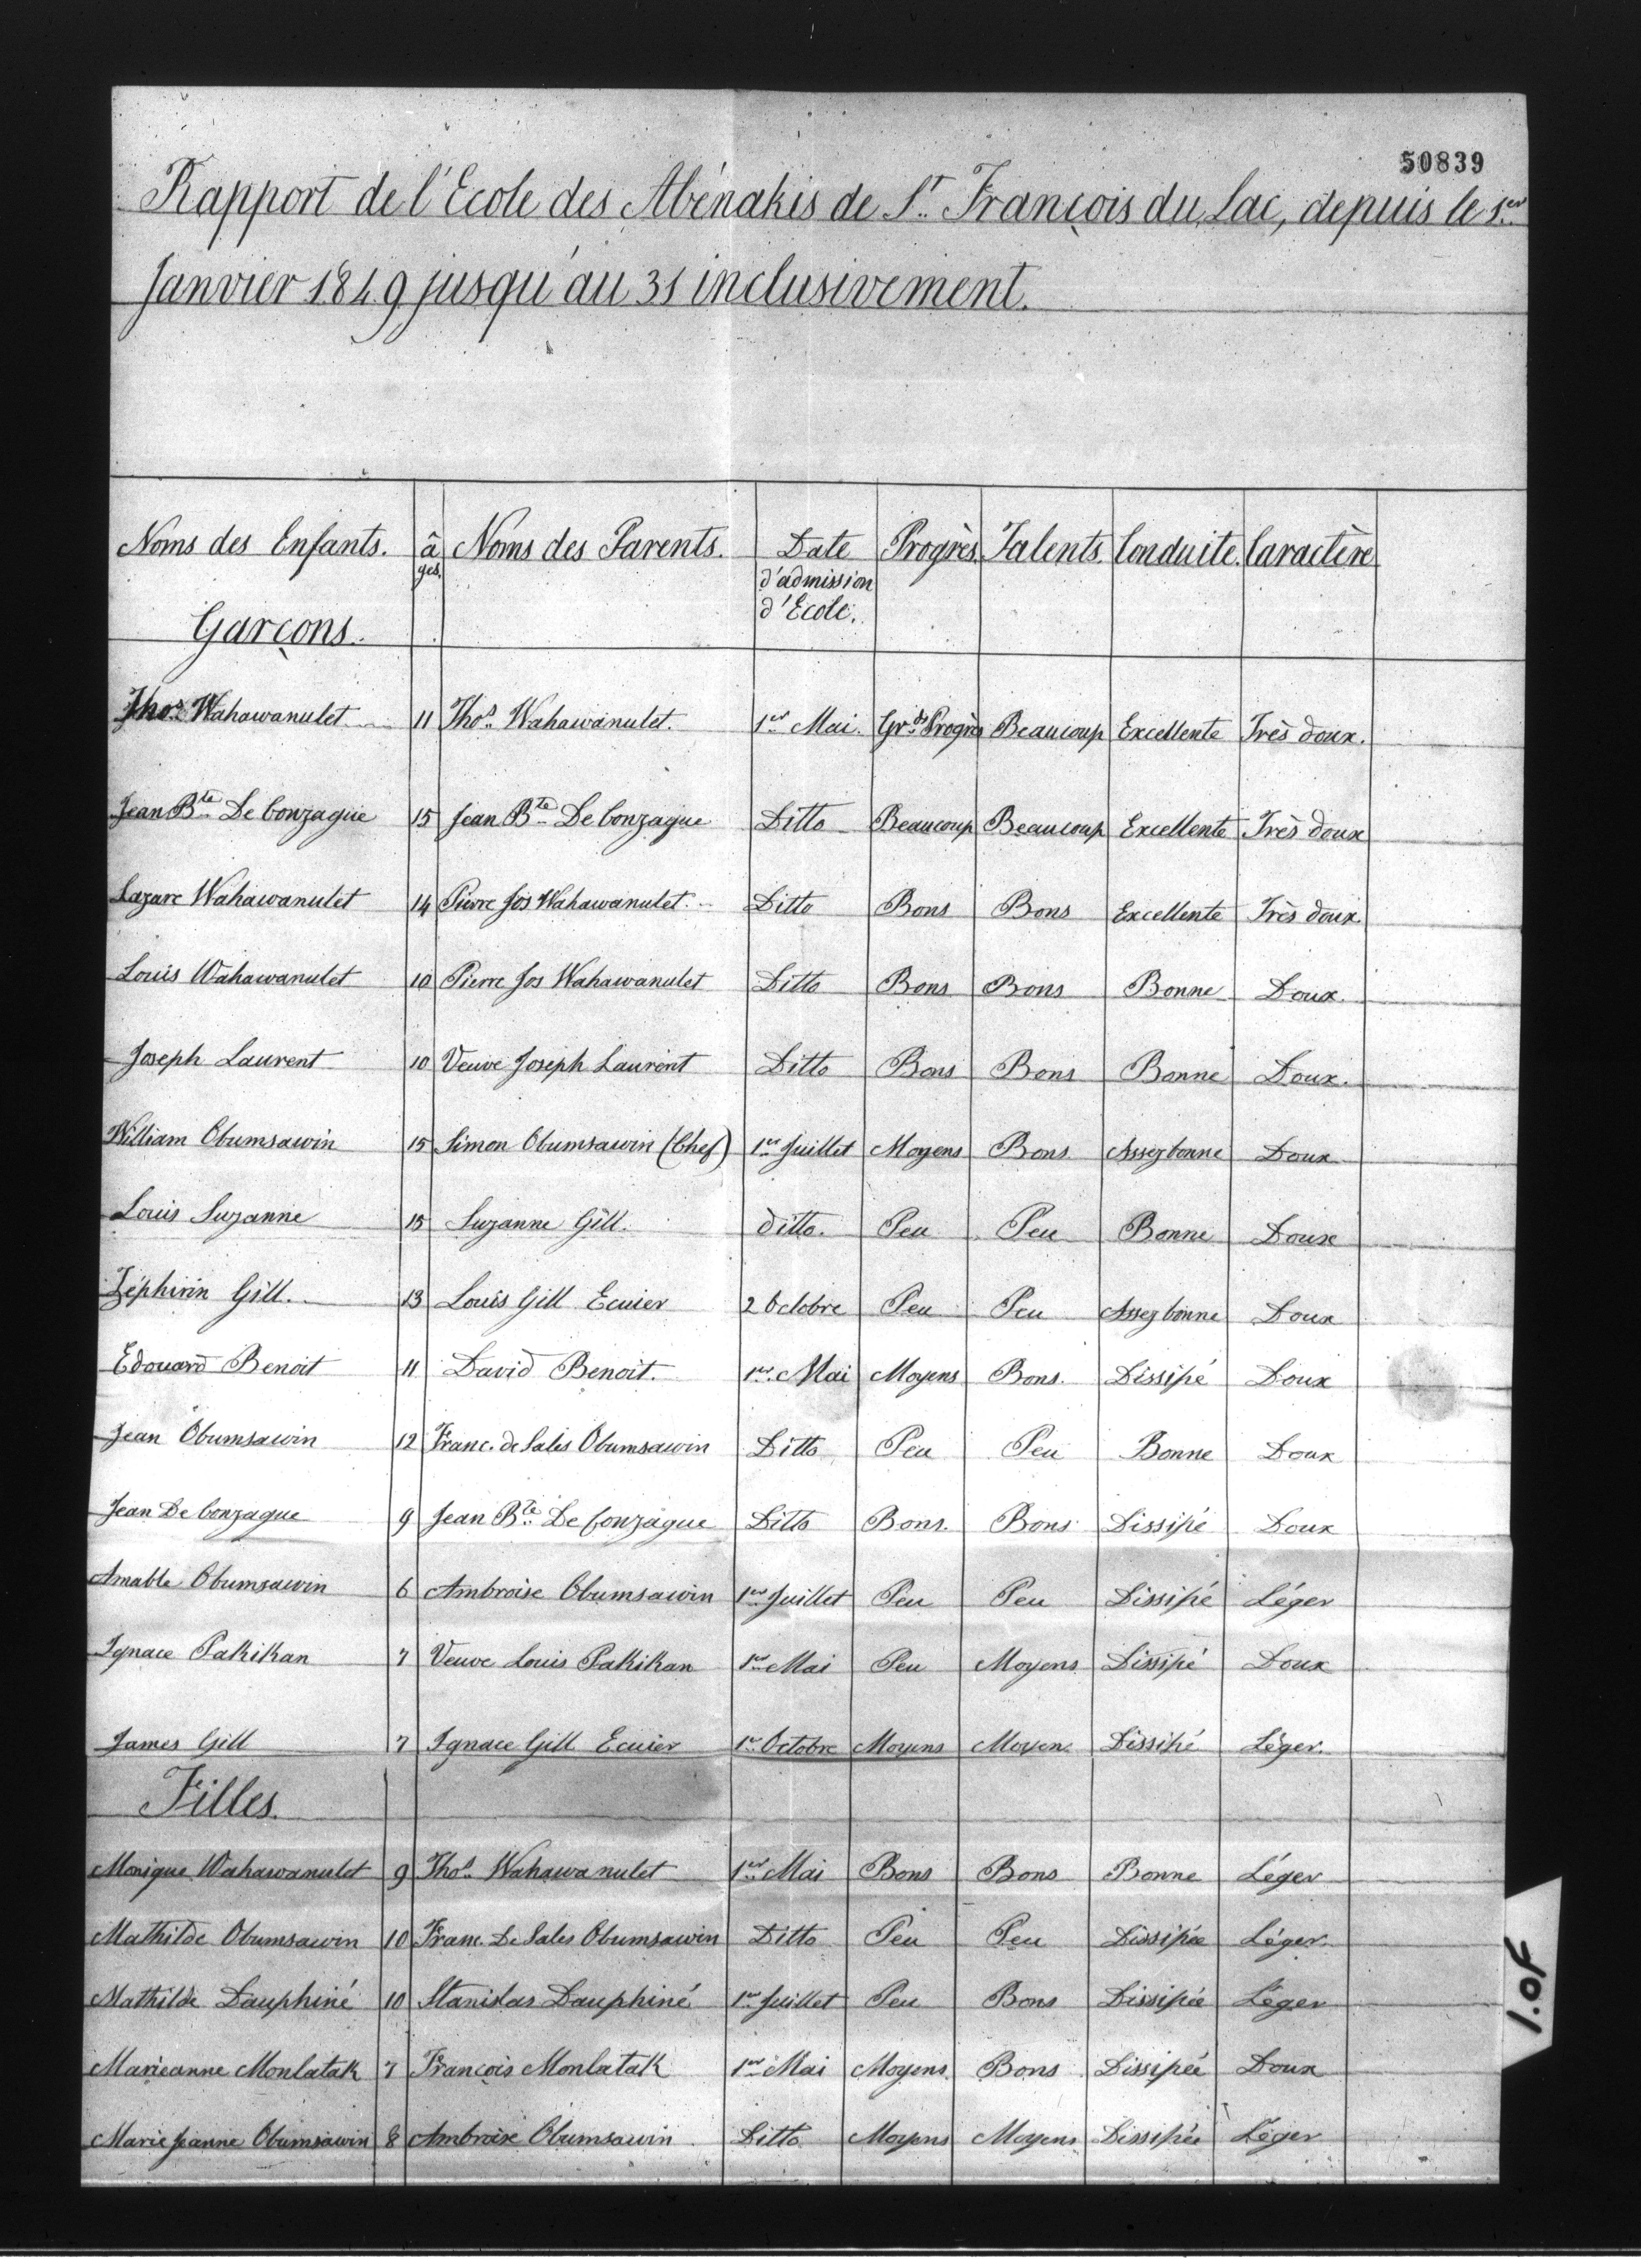 50839
Rapport de l'Ecole des Abénakis de St. François du Lac, depuis le 1er
Janvier 1849 jusqu'au 31 inclusivement.
Noms des Enfants. âges. Noms des Parents. Date d'admission d'Ecole. Progrès. Talents. Conduite. Caractère
Garçons.
Thos. Wahawanulet 11 Thos. Wahawanulet. 1er Mai. Grds Progrès Beaucoup Excellente Très doux.
Jean Bte De Gonzague 15 Jean Bte De Gonzague Ditto Beaucoup Beaucoup Excellente Très doux
Lazare Wahawanulet 14 Pierre Jos Wahawanulet Ditto Bons Bons Excellente Très doux
Louis Wahawanulet 10 Pierre Jos Wahawanulet Ditto Bons Bons Bonne Doux.
Joseph Laurent 10 Veuve Joseph Laurent Ditto Bons Bons Bonne Doux.
William Obumsawin 15 Simon Obumsawin (Chef) 1er Juillet Moyens Bons Assez bonne Doux
Louis Suzanne 15 Suzanne Gill. ditto. Peu Peu Bonne Doux
Zéphirin Gill. 13 Louis Gill Ecuier 2 Octobre Peu Peu Assez bonne Doux
Edouard Benoit 11 David Benoit. 1er Mai Moyens Bons. Dissipé Doux
Jean Obumsawin 12 Franc. de Sales Obumsawin Ditto Peu Peu Bonne Doux
Jean De Gonzague 9 Jean Bte De Gonzague Ditto Bons. Bons Dissipé Doux
Amable Obumsawin 6 Ambroise Obumsawin 1er Juillet Peu Peu Dissipé Léger
Ignace Pakikan 7 Veuve Louis Pakikan 1er Mai Peu Moyens Dissipé Doux
James Gill 7 Ignace Gill Ecuier 1er Octobre Moyens Moyen Dissipé Léger.
Filles.
Monique Wahawanulet 9 Thos. Wahawanulet 1er Mai Bons Bons Bonne Léger
Mathilde Obumsawin 10 Franc. De Sales Obumsawin Ditto Peu Peu Dissipée Léger.
Mathilde Dauphiné 10 Stanislas Dauphiné 1er Juillet Peu Bons Dissipée Léger
Marieanne Monlatak 7 François Monlatak 1er Mai Moyens Bons Dissipée Doux
Marie Jeanne Obumsawin 8 Ambroise Obumsawin Ditto Moyens Moyens Dissipée Léger
1.of